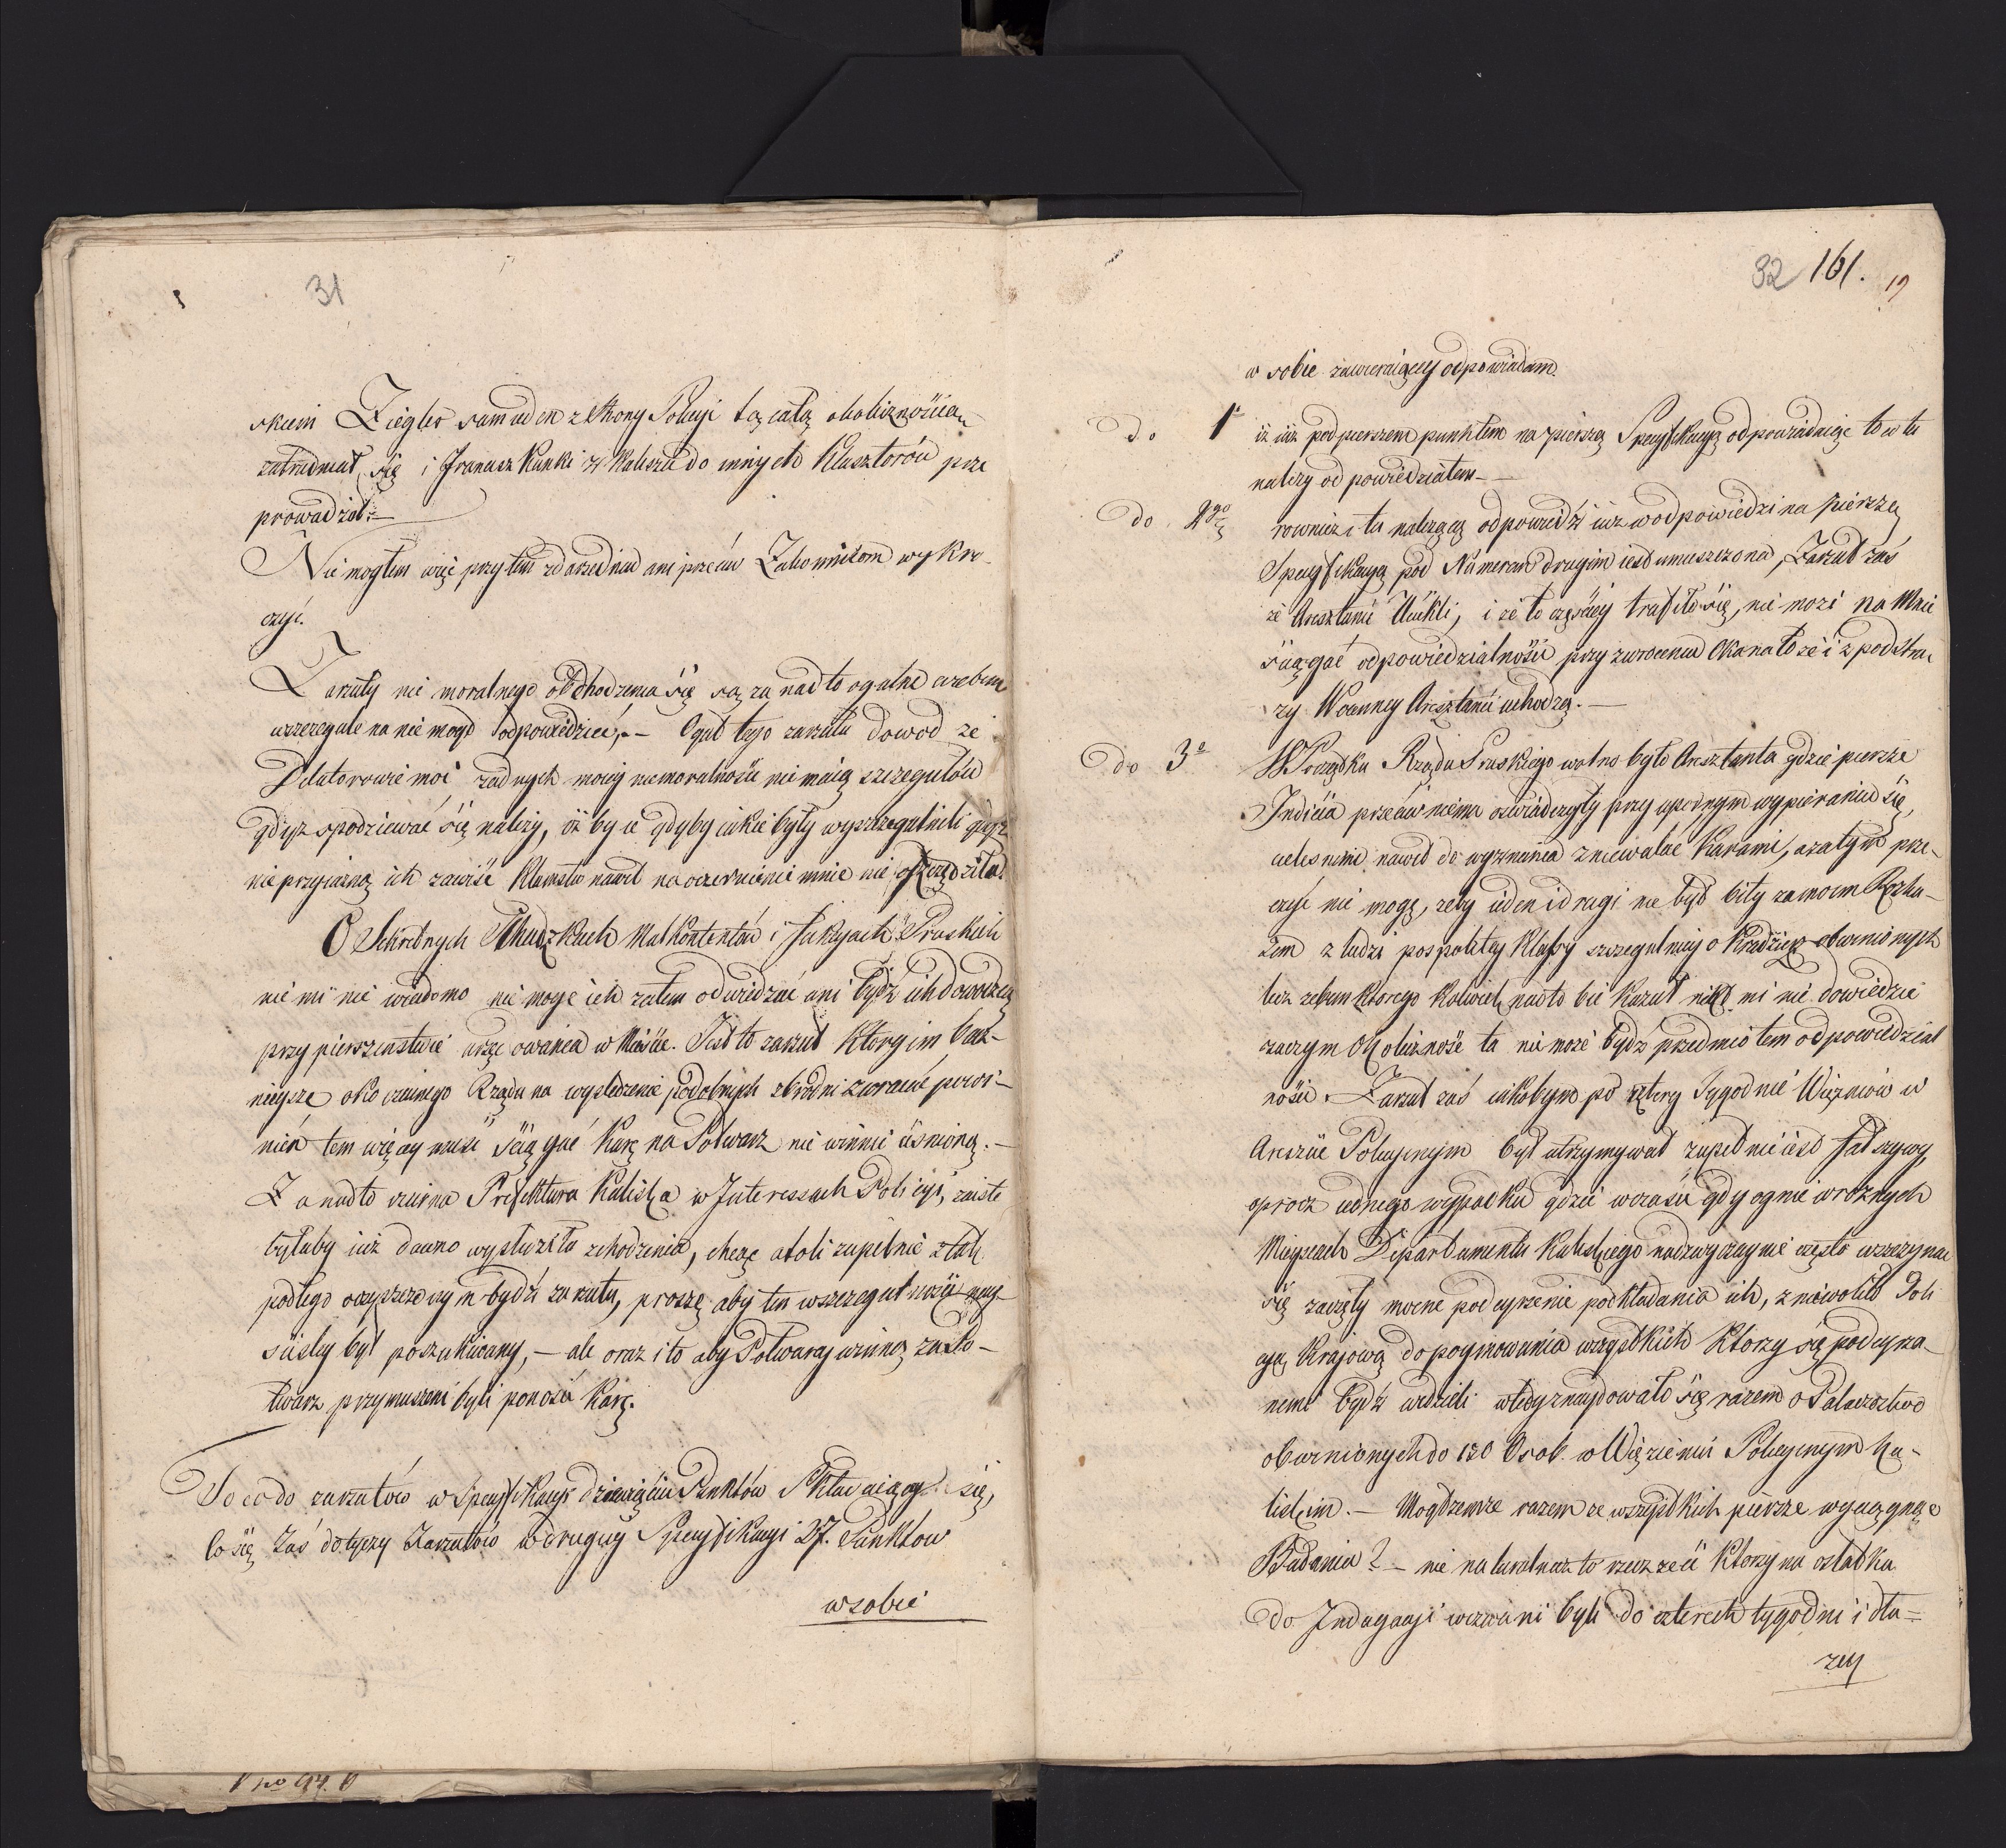 31
skiem Ziegler sam ieden z strony Policyi tą całą okolicznością
zatrudniał się i Franciszkanki z Kalisza do innych Klasztorów prze
prowadził.—
Nie mogłem więc przy tem zdarzeniu ani przeciw Zakonnikom wykro-
czyć.
Zarzuty nie moralnego obchodzenia się są za nadto ogulne azebym
wszczegule na nie mogł odpowiedzieć,.— Oguł tego zarzutu dowod ze
Delatorowie moi żadnych moiey niemoralności nie maią szczegułów
gdyż spodziewać się należy, iż by ie gdyby iakie były wyszczegulnili gdyż
nieprzyiazną ich zawiść Kłamstw nawet na oczernienie mnie nie oszczędziła.
O Sekretnych Schadzkach Malkontentów i Fakcyach Pruskich
nie mi nie wiadomo nie mogę ich zatem odwiedzać ani bydź ich dowodzcą
przy pierwszeństwie urzędowania w Mieście. Jest to zarzut który im bacz-
nieysze oko czuinego Rządu na wyśledzenie podobnych zbrodni zwracać powi-
nien tem więcey musi ściągać Karę na Potwarz nie winnie ciśnioną.—
Zanadto czuina Prefektura Kaliska w Interessach Policyi, zaiste
byłaby iuż dawno wyśledziła schodzenia, chcąc atoli zupełnie z tak
podłego oczyszczonym bydź zarzutu, proszę aby ten wszczegulności nay-
ściśley był poszukiwany,— ale oraz i to aby Potwarcy winną za Po-
twarz przymuszeni byli ponosić Karę.
To co do zarzutów w Specyfikacyi dziewięciu Punktów składaiącey się,
co się zaś dotyczy Zarzutów w drugiey Specyfikacyi 27. Punktow
wsobie
32 161. 19
w sobie zawieraiącey odpowiadam.
do 1º iż iuż pod pierwszem punktem na pierszą Specyfikacyą odpowiadaiąc to co tu
należy odpowiedziałem.—
do 2go rowniez i tu należąca odpowiedź iuż w odpowiedzi na pierszą
Specyfikacyą pod Numerem drugim iest umieszczona, Zarzut zaś
że Aresztanci Uciekli, i że to częściey trafiło się, nie może na Mnie
ściągać odpowiedzialności przy zwroceniu Oka na to że i z pod Stra-
ży Woienney Aresztanci uchodzą.—
do 3º W Porządku Rządu Pruskiego wolno było Aresztanta gdzie piersze
Indicia przeciw niemu oświadczyły przy upornym wypieraniu się,
cielesnemi nawet do wyznania zniewalać Karami, azatym prze-
czyć nie mogę, zeby ieden i drugi nie był bity za moim Rozka-
zem z ludzi pospolitey Klassy szczegulniey o Kradzież obwinionych
lecz zebym ktorego kolwiek nadto bić kazał nikt mi nie dowiedzie
zaczym Okoliczność ta nie może bydź przedmiotem odpowiedzial
ności. Zarzut zaś iakobym po cztery Tygodnie Więzniow w
Areszcie Policyinym był utrzymywał zupełnie iest fałszywy,
oprocz iednego wypadku gdzie wczasie gdy ognie w roznych
Mieyscach Departamentu Kaliskiego nadzwyczaynie często wszczynac
się zaczęły mocne podeyrzenie podkładania ich, zniewoliło Poli
cyą Kraiową do poymowania wszystkich ktorzy się podeyrza-
nemi bydź widzieli wtedy znaydowało się razem o Palaczostwo
obwinionych do 120 Osob w Więzieniu Policyinym Ka-
liskim.— Mogłżemże razem ze wszystkich piersze wyciągnąć
Badania?— nie naturalnasz to rzecz że ci ktorzy na ostatku
do Indagacyi wezwani byli do czterech tygodni i dłu=
zey